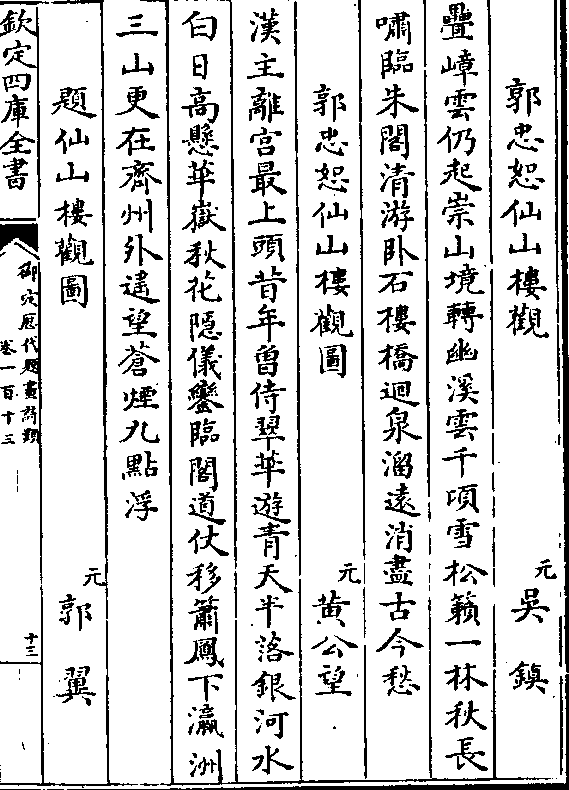 郭忠恕仙山樓觀　元　吳　鎮
疊嶂雲仍起崇山境轉幽溪雲千頃雪松籟一林秋長
嘯臨朱閣清游卧石樓橋迴泉溜遠消盡古今愁
郭忠恕仙山樓觀圖　元　黄公望
漢主離宫最上頭昔年曽侍翠華遊青天半落銀河水
白日高懸華嶽秋花隠儀鑾臨閣道仗移簫鳳下瀛洲
三山更在齊州外遥望蒼煙九點浮
題仙山樓觀圖　元　郭　翼
欽定四庫全書　御定歷代題畫詩類　卷一百十三　十三